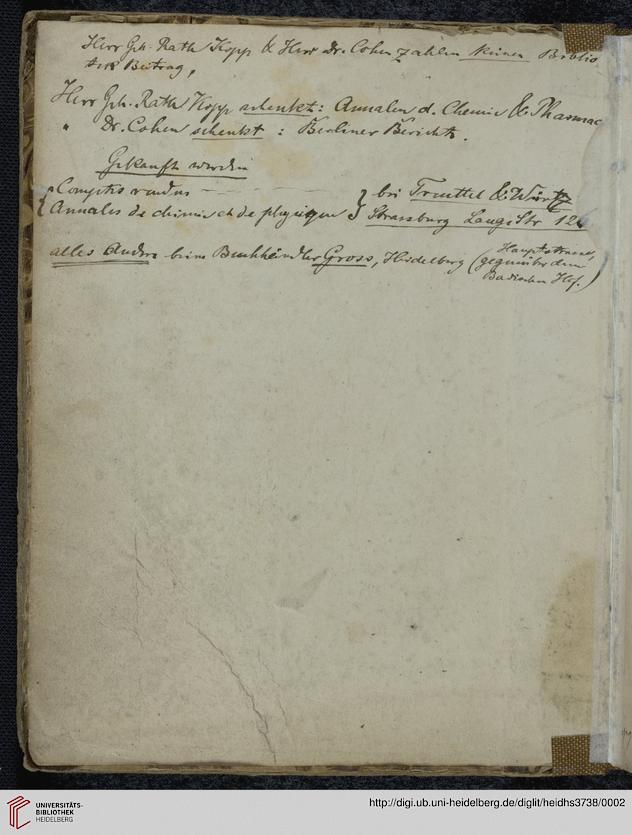 Herr Geh. Rath Kopp & Herr Dr. Cohen zahlen keinen Biblio
thek Beitrag,
Herr Geh. Rath Kopp schenkt: Annalen d. Chemie & Pharmac
" Dr. Cohen schenkt : Berliner Berichte.
Gekauft werden
{ Comptes rendus - - - } bei Treuttel & Würtz
{ Annales de chimie et de physique } Strassburg Lange Str 12
alles Andere beim Buchhändler Gross, Heidelberg (Hauptstrasse,
gegenüber dem
Badischen Hof.)
UNIVERSITÄTS-
BIBLIOTHEK
HEIDELBERG
http://digi.ub.uni-heidelberg.de/diglit/heidhs3738/0002